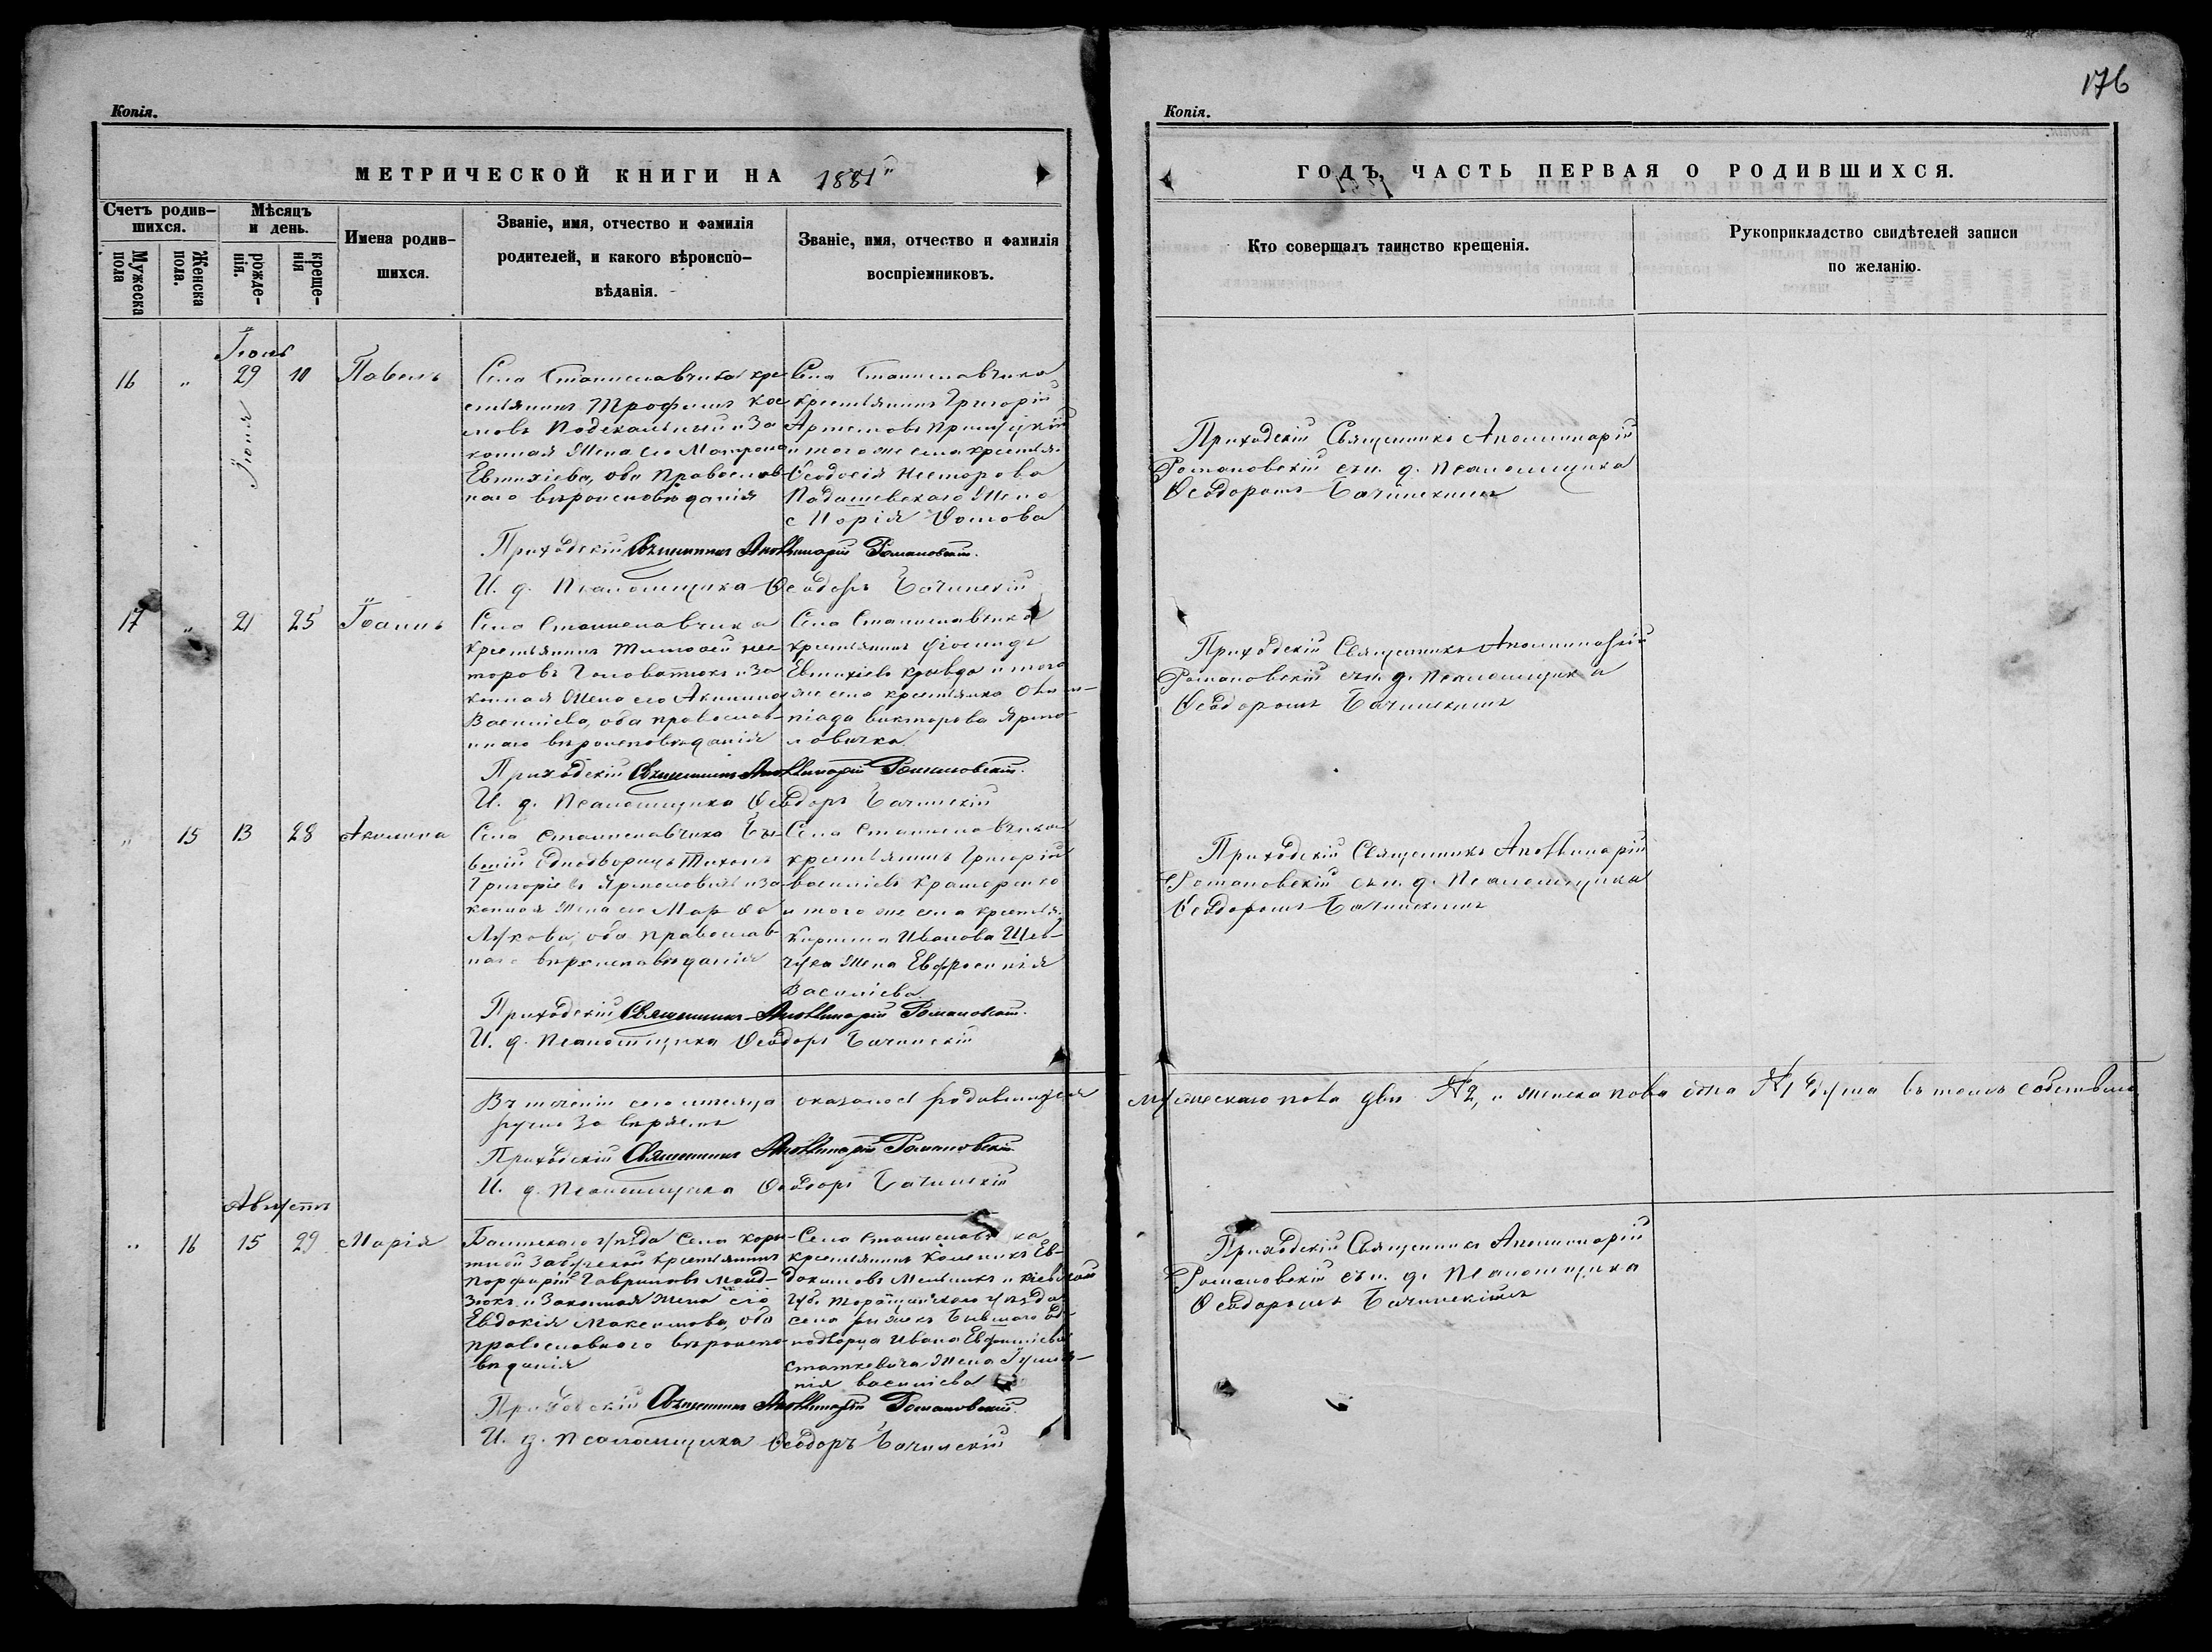 Копія.
МЕТРИЧЕСКОЙ КНИГИ НА 1881
Счетъ родив-
шихся.
Мужеска
пола
Женска
пола.
Мѣсяцъ
и день.
рожде-
нія.
креще-
нія
Имена родив-
шихся.
Званіе, имя, отчество и фамилія
родителей, и какого вѣроиспо-
вѣданія.
Званіе, имя, отчество и фамилія
воспріемниковъ.
Іюль
16 " 29 10 Павелъ
Іюня
Села Станиславчика кре
стьянинъ Трофимъ
конная жена его Матрона
Евтихіева, оба Православ
наго вѣроисповѣданія
Села Станиславчика
крестьянинъ Григорій
и того же села крестья
Ѳеодосія Несторова
жена
Марія
Приходскій Священникъ Аполлинарій Романовскій.
И. д. Псаломщика Ѳеодоръ Бачинскій
17 " 21 25 Іоаннъ
Села Станиславчика
крестьянинъ Тимофей Нес
торовъ Головатюкъ и за
конная жена его Акилина
Василіева, оба православ-
наго вѣроисповѣданія
Села Станиславчика
крестьянинъ
Евтихіевъ Кривда и того
же села крестьянка Олим-
піада Викторова Ярмо
ловичка
Приходскій Священникъ Аполлинарій Романовскій.
И. д. Псаломщика Ѳеодоръ Бачинскій
" 15 13 28 Акилина
Села Станиславчика Бы-
вшій Однодворецъ Тихонъ
Григоріевъ Ярмоловичъ и за
конная жена его Марѳа
Лукова, оба православ
наго вѣроисповѣданія
Села Станиславчика
крестьянинъ Григорій
Василіевъ
и того же села крестья.
Кирилла Иванова Шев-
чука жена Евфросинія
Василіева
Приходскій Священникъ Аполлинарій Романовскій.
И. д. Псаломщика Ѳеодоръ Бачинскій
Въ теченіи сего мѣсяца оказалось родившихся
ручно завѣряемъ
Приходскій Священникъ Аполлинарій Романовскій.
И. д. Псаломщика Ѳеодоръ Бачинскій
Августъ
" 16 15 29 Марія
Балтскаго уѣзда Села
крестьянинъ
Порфирій Гавриловъ
и Законная жена его
Евдокія Максимова, оба
православнаго вѣроиспо
вѣданія
Села Станиславчика
крестьянинъ Ев-
докимовъ Мельникъ и Кіевской
Губ. Таращанскаго уѣзда
села Бывшаго Од
нодворца Ивана
Статкевича жена
нія Василіева
Приходскій Священникъ Аполлинарій Романовскій.
И. д. Псаломщика Ѳеодоръ Бачинскій
176
Копія.
ГОДЪ, ЧАСТЬ ПЕРВАЯ О РОДИВШИХСЯ.
Кто совершалъ таинство крещенія.
Рукоприкладство свидѣтелей записи
по желанію.
Приходскій Священникъ Аполлинарій
Романовскій съ и. д. Псаломщика
Ѳеодоромъ Бачинскимъ
Приходскій Священникъ Аполлинарій
Романовскій съ и. д. Псаломщика
Ѳеодоромъ Бачинскимъ
Приходскій Священникъ Аполлинарій
Романовскій съ и. д. Псаломщика
Ѳеодоромъ Бачинскимъ
мужескаго пола двѣ №2, и женска пола одна №1 душа въ томъ собствен
Приходскій Священникъ Аполлинарій
Романовскій съ и. д. Псаломщика
Ѳеодоромъ Бачинскимъ